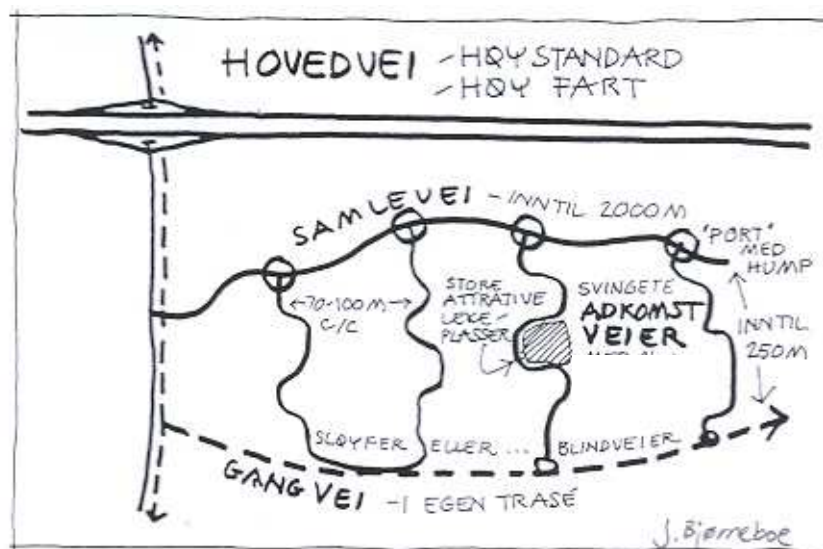 HOVEDVEI - HØY STANDARD
- HØY FART
SAMLEVEI - INNTIL 2000 M
"PORT"
MED
HUMP
70-100 M
C/C
STORE
ATTRATIVE
LEKE-
PLASSER
SVINGETE
ADKOMST
VEIER
INNTIL
250 M
SLØYFER ELLER ... BLINDVEIER
GANGVEI - I EGEN TRASÉ
J. Bjørneboe